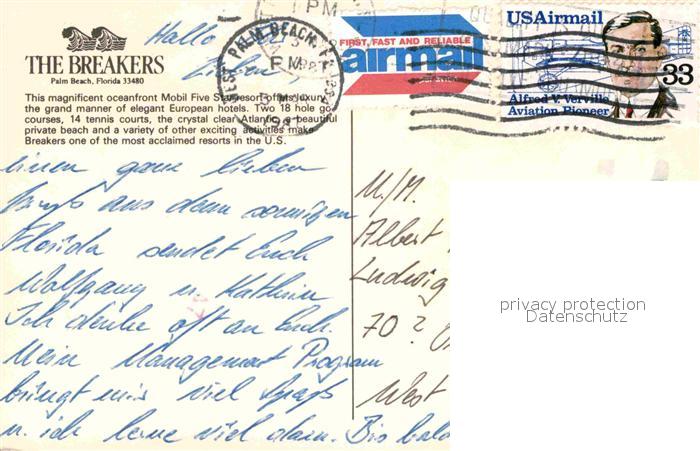 Hallo Ihr
Lieben
THE BREAKERS
Palm Beach, Florida 33480
This magnificent oceanfront Mobil Five Star resort offers luxury
the grand manner of elegant European hotels. Two 18 hole go
courses, 14 tennis courts, the crystal clear Atlantic, a beautiful
private beach and a variety of other exciting activities make
Breakers one of the most acclaimed resorts in the U.S.
PM
WEST PALM BEACH, FL
PM
FIRST, FAST AND RELIABLE
airmail
USAirmail
33
Alfred V. Verville
Aviation Pioneer
einen ganz lieben
Gruß aus dem sonnigen
Florida sendet Euch
Wolfgang u. Kathrin
Ich denke oft an Euch.
Mein Management Program
bringt mir viel Spaß
u. ich lerne viel dazu. Bis bald
M/M.
Albert
Ludwig
70?
West
privacy protection
Datenschutz